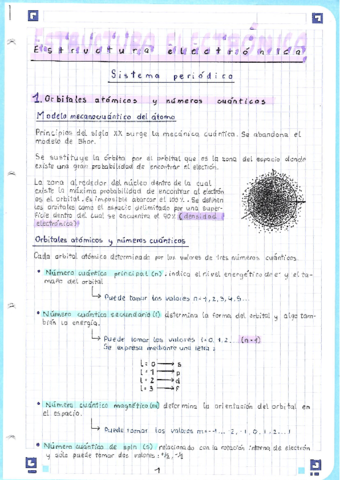 ESTRUCTURA ELECTRÓNICA
Estructura electrónica
Sistema periódico
1. Orbitales atómicos y números cuánticos
Modelo mecanocuántico del átomo
Principios del siglo XX surge la mecánica cuántica. Se abandona el
modelo de Bhor.
Se sustituye la órbita por el orbital que es la zona del espacio donde
existe una gran probabilidad de encontrar el electrón.
La zona alrededor del núcleo dentro de la cual
existe la máxima probabilidad de encontrar al electrón
es el orbital. Es imposible abarcar el 100%. Se definen
los orbitales como el espacio delimitado por una super-
ficie dentro del cual se encuentra el 90% (densidad
electrónica)
Orbitales atómicos y números cuánticos
Cada orbital atómico determinado por los valores de tres números cuánticos.
• Número cuántico principal (n), indica el nivel energético del e⁻ y el ta-
maño del orbital
↳ Puede tomar los valores n=1,2,3,4,5...
• Número cuántico secundario (l) determina la forma del orbital y algo tam-
bién la energía.
↳ Puede tomar los valores l=0,1,2... (n-1)
Se expresa mediante una letra:
l=0 → s
l=1 → p
l=2 → d
l=3 → f
• Número cuántico magnético (m) determina la orientación del orbital en
el espacio.
↳ Puede tomar los valores m=-l ... 2,-1,0,1,2...l
• Número cuántico de spin (s) relacionado con la rotación interna de electrón
y sólo puede tomar dos valores: +½, -½
1